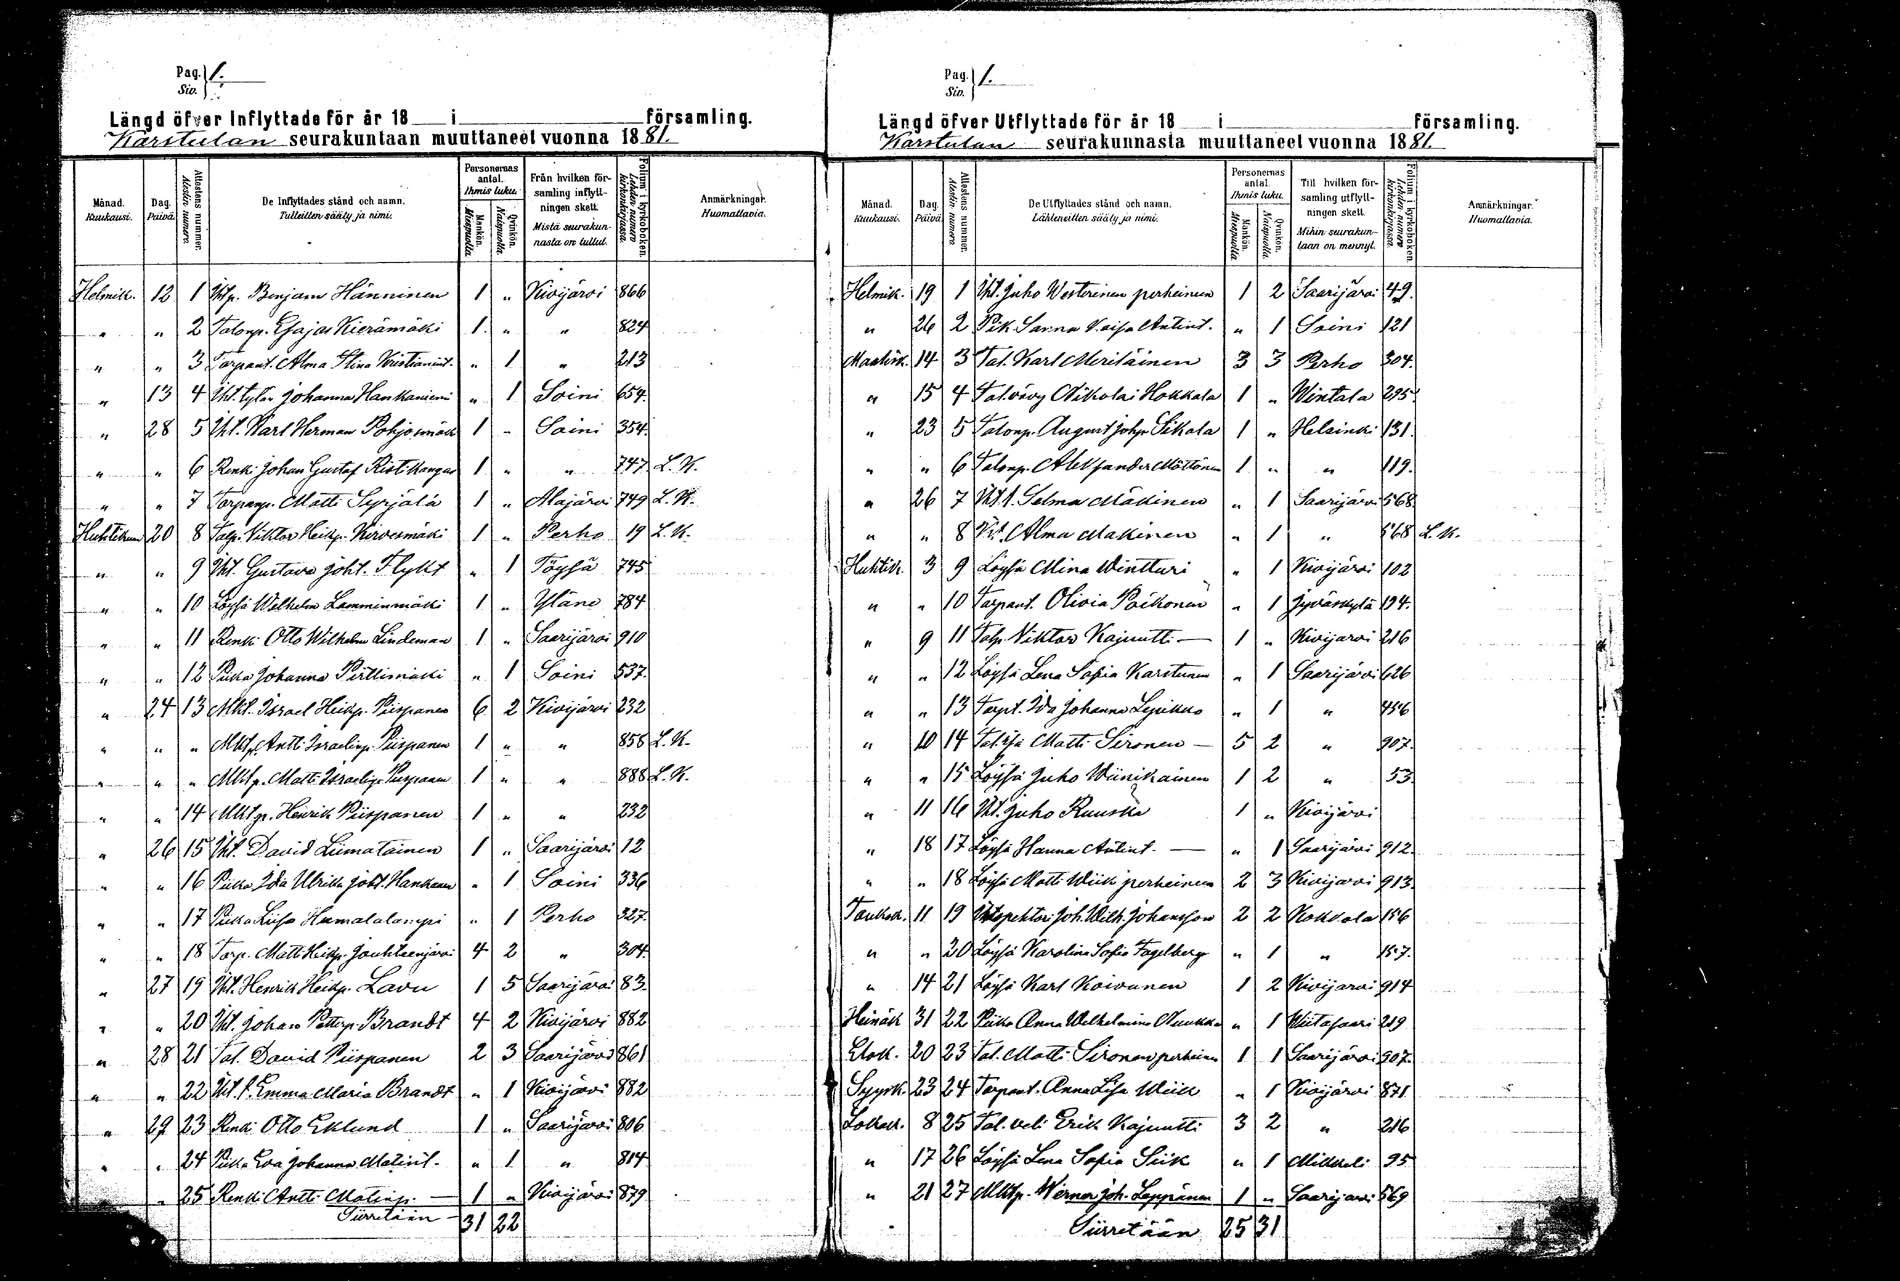 Pag. 1.
Siv.
Längd öfver Inflyttade för år 18 i församling.
Karstulan seurakuntaan muuttaneet vuonna 1881.
Månad. Kuukausi. Dag. Päivä. Attestens nummer. Atestin numero. De Inflyttades stånd och namn. Tulleitten sääty ja nimi. Personernas antal. Ihmis luku. Mankön. Miespuolia. Qvinkön. Naispuolia. Från hvilken församling inflyttningen skett. Mistä seurakunnasta on tullut. Folium i kyrkoboken. Lehden numero kirkonkirjassa. Anmärkningar. Huomattavia.
Helmik. 12 1 Iht.p. Benjam Hänninen 1 " Kivijärvi 866
" " 2 Talonp. Esajas Kierämäki 1 " " 824
" " 3 Torpant. Alma Stina Kristianint. " 1 " 213
" 13 4 Iht. tytär Johanna Hankaniemi " 1 Soini 654.
" 28 5 Iht. Karl Herman Pohjosmäki 1 " Soini 354.
" " 6 Renki Johan Gustaf Ristikangas 1 " " 747. L. K.
" " 7 Torpanp. Matti Syrjälä 1 " Alajärvi 749 L. K.
Huhtikuu 20 8 Talp. Viktor Heikp. Kirvesmäki 1 " Perho 19 L. K.
" " 9 Iht. Gustava Joht. Flykt " 1 Töysä 745
" " 10 Löysä Wilhelm Lamminmäki 1 " Yläne 784
" " 11 Renki Otto Wilhelm Lindeman 1 " Saarijärvi 910
" " 12 Piika Johanna Pirttimäki " 1 Soini 537.
" 24 13 Mkt. Israel Heikp. Piispanen 6 2 Kivijärvi 232
" " " Mktp. Antti Israelinp. Piispanen 1 " " 858 L. K.
" " " Mktp. Matti Israelinp. Piispanen 1 " " 888 L. K.
" " 14 Mktp. Henrik Piispanen 1 " " 232
" 26 15 Iht. David Liimatainen 1 " Saarijärvi 12
" " 16 Piika Ida Ulrika Joht. Hankanen " 1 Soini 336
" " 17 Piika Liisa Humalalampi " 1 Perho 327.
" " 18 Torp. Matti Heikp. Jouhteenjärvi 4 2 " 304.
" 27 19 Iht. Henrik Heikp. Lavu 1 5 Saarijärvi 83.
" " 20 Iht. Johan Petterp. Brandt 4 2 Kivijärvi 882
" 28 21 Tal. David Piispanen 2 3 Saarijärvi 861
" " 22 Iht. t. Emma Maria Brandt " 1 Kivijärvi 882
" 29 23 Renki Otto Eklund 1 " Saarijärvi 806
" " 24 Piika Eva Johanna Matint. " 1 " 814
" 25 Renki Antti Matinp. 1 " Kivijärvi 879
Siirretään 31 22
Pag. 1.
Siv.
Längd öfver Utflyttade för år 18 i församling.
Karstulan seurakunnasta muuttaneet vuonna 1881.
Månad. Kuukausi. Dag. Päivä. Attestens nummer. Atestin numero. De Utflyttades stånd och namn. Lähteneitten sääty ja nimi. Personernas antal. Ihmis luku. Mankön. Miespuolia. Qvinkön. Naispuolia. Till hvilken församling utflyttningen skett. Mihin seurakuntaan on mennyt. Folium i kyrkoboken. Lehden numero kirkonkirjassa. Anmärkningar. Huomattavia.
Helmik. 19 1 Iht. Juho Westerinen perheineen 1 2 Saarijärvi 49.
" 26 2 Piik. Sanna Kaisa Antint. " 1 Soini 121
Maalisk. 14 3 Tal. Karl Meriläinen 3 3 Perho 304.
" 15 4 Tal.vävy Nikolai Hokkala 1 " Wintala 295.
" 23 5 Talonp. August Johp. Sikala 1 " Helsinki 131.
" " 6 Talonp. Aleksander Möttönen 1 " " 119.
" 26 7 Iht. t. Selma Mäkinen " 1 Saarijärvi 568.
" " 8 Iht. Alma Mäkinen " 1 " 568 L. K.
Huhtik. 3 9 Löysä Mina Wintturi " 1 Kivijärvi 102
" " 10 Torpant. Olivia Poikonen " 1 Jyväskylä 194.
" 9 11 Talp. Viktor Kajuutti 1 " Kivijärvi 216
" " 12 Löysä Lena Sofia Karstunen " 1 Saarijärvi 626
" " 13 Torpt. Ida Johanna Lepikko " 1 " 456
" 10 14 Matti Sironen 5 2 " 907.
" " 15 Löysä Juho Wiinikainen 1 2 " 53
" 11 16 Iht. Juho Ruuska 1 " Kivijärvi
" 18 17 Löysä Hanna Antint. " 1 Saarijärvi 912.
" " 18 Löysä Matti Wiik perheineen 2 3 Kivijärvi 913.
Toukok. 11 19 Inspektori Joh. Wilh. Johansson 2 2 Kokkola 156
" " 20 Löysä Karolina Sofia Fagelberg " 1 " 157.
" 14 21 Löysä Karl Koivunen 1 2 Kivijärvi 914
Heinäk 31 22 Piika Anna Wilhelmina Nuukka " 1 Wiitasaari 219
Elok. 20 23 Tal. Matti Sironen perheineen 1 1 Saarijärvi 907.
Syysk. 23 24 Torpant. Anna Lisa Wiik " 1 Kivijärvi 871
Lokak. 8 25 Tal. veli Erik Kajuutti 3 2 " 216
" 17 26 Löysä Lena Sofia Siik " 1 Mikkeli 95
" 21 27 Mktp. Werner Joh. Leppänen 1 " Saarijärvi 569
Siirretään 25 31